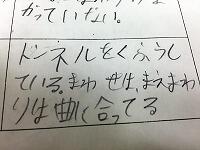 かっていない。
トンネルをくふうし
ている。まわせは、まえまわ
りは曲に合ってる